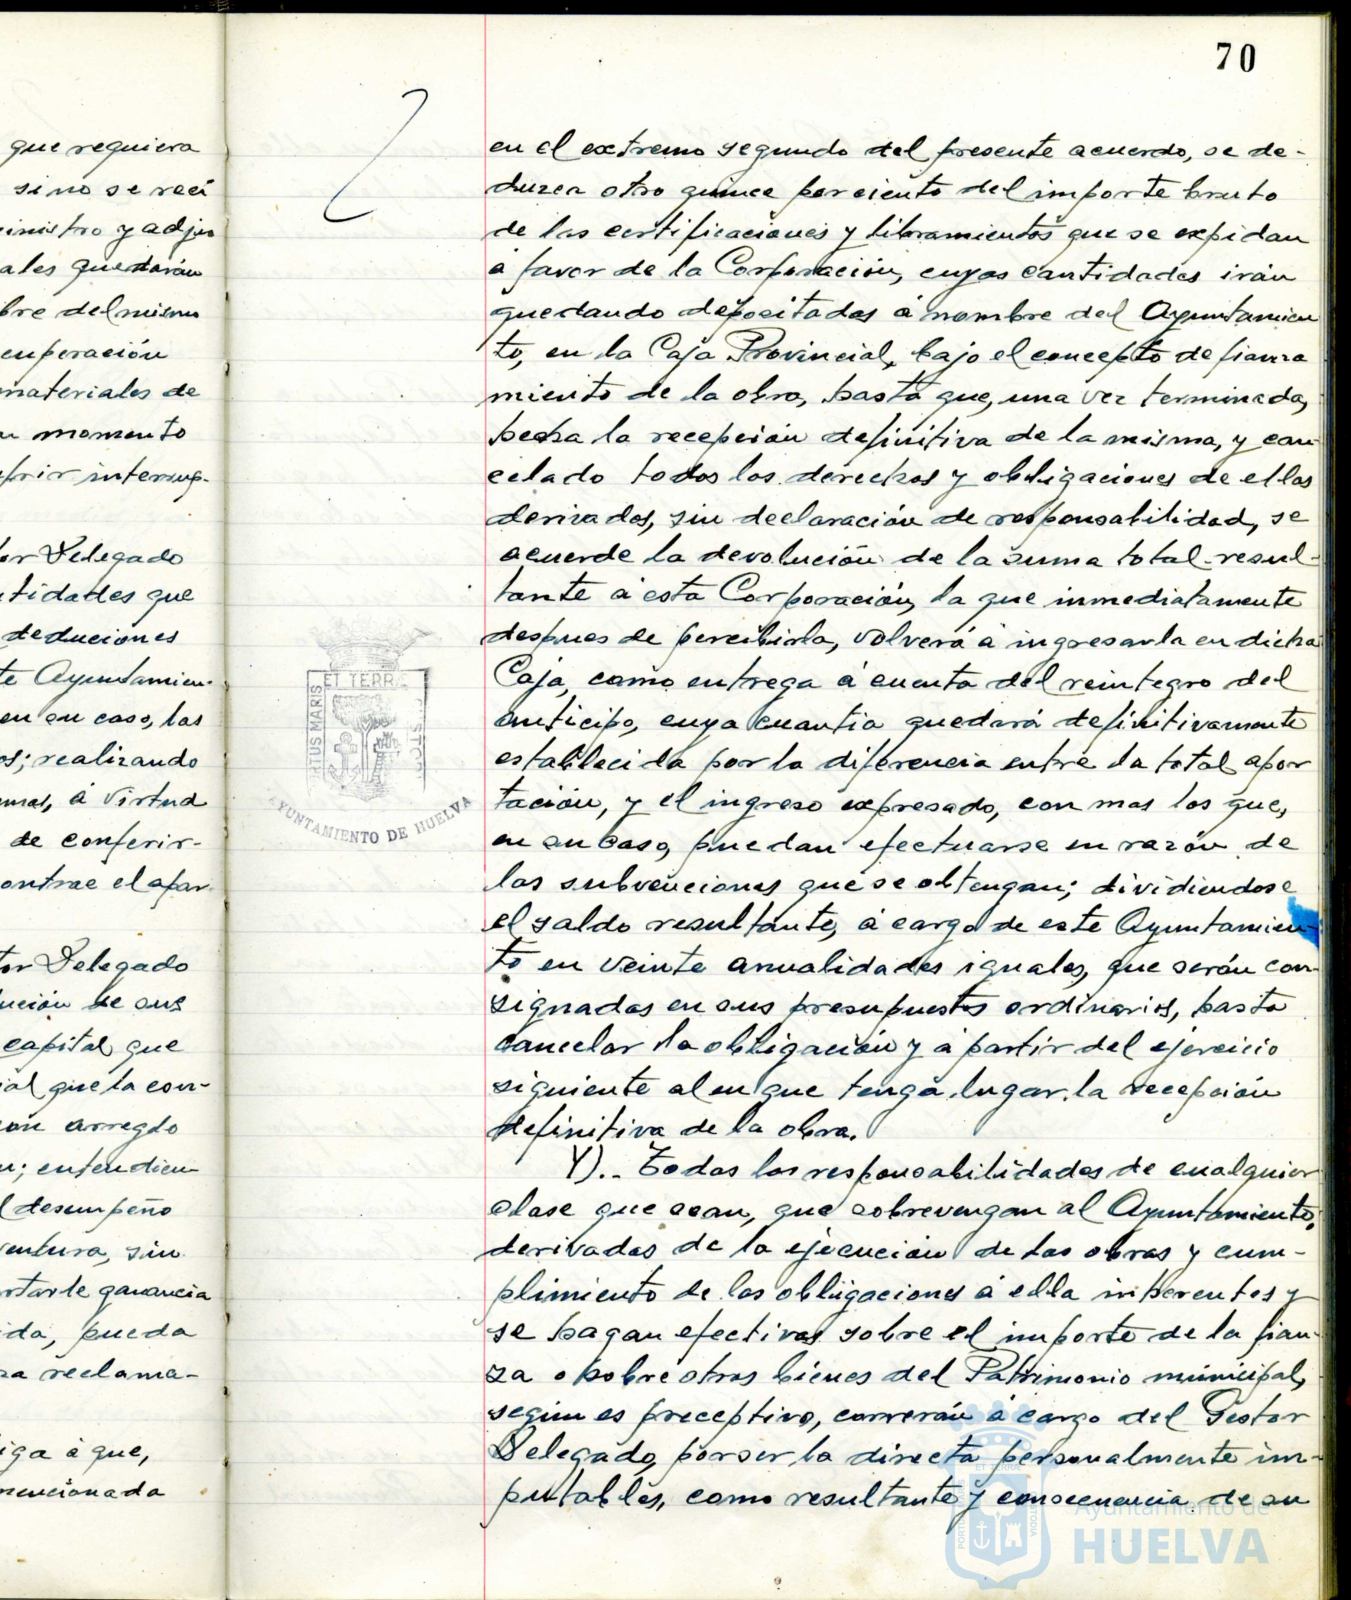 70
que requiera
si no se reci
inistro y adju
ales quedarán
bre del mismo
cuperación
materiales de
momento
frir interrup-
or Delegado
tidades que
deduciones
te Ayuntamien-
en su caso, las
os; realizando
á virtud
de conferir-
ontrae el apar
tor Delegado
lución de sus
capital, que
ial que la con-
con arreglo
n; entendien-
l desempeño
ventura, sin
rtarle ganancia
ida, pueda
ra reclama-
iga á que,
mencionada
en el extremo segundo del presente acuerdo, se de-
duzca otro quince por ciento del importe bruto
de las certificaciones y libramientos que se expidan
á favor de la Corporación, cuyas cantidades irán
quedando depositadas á nombre del Ayuntamien
to, en la Caja Provincial, bajo el concepto de fianza
miento de la obra, hasta que, una vez terminada,
hecha la recepción definitiva de la misma, y can-
celado todos los derechos y obligaciones de ellas
derivados, sin declaración de responsabilidad, se
acuerde la devolución de la suma total resul-
tante á esta Corporación, la que inmediatamente
despues de percibirla, volverá á ingresarla en dicha
Caja, como entrega á cuenta del reintegro del
anticipo, cuya cuantia quedará definitivamente
establecida por la diferencia entre la total apor
tación, y el ingreso expresado, con mas los que,
en su caso, puedan efectuarse en razón de
las subvenciones que se obtengan; dividiendose
el saldo resultante, á cargo de este Ayuntamien-
to en veinte anualidades iguales, que serán con-
signadas en sus presupuestos ordinarios, hasta
cancelar la obligación y á partir del ejercicio
siguiente al en que tenga lugar la recepción
definitiva de la obra.
Y).- Todas las responsabilidades de cualquier
clase que sean, que sobrevengan al Ayuntamiento,
derivadas de la ejecución de las obras y cum-
plimiento de las obligaciones á ella inherentes y
se hagan efectivas sobre el importe de la fian-
za o sobre otros bienes del Patrimonio municipal,
segun es preceptivo, correrán á cargo del Gestor
Delegado, por ser la directa personalmente im-
putables, como resultante y consecuencia de su
ET TERRÆ
PORTUS MARIS
CUSTODIA
AYUNTAMIENTO DE HUELVA
Ayuntamiento de
HUELVA